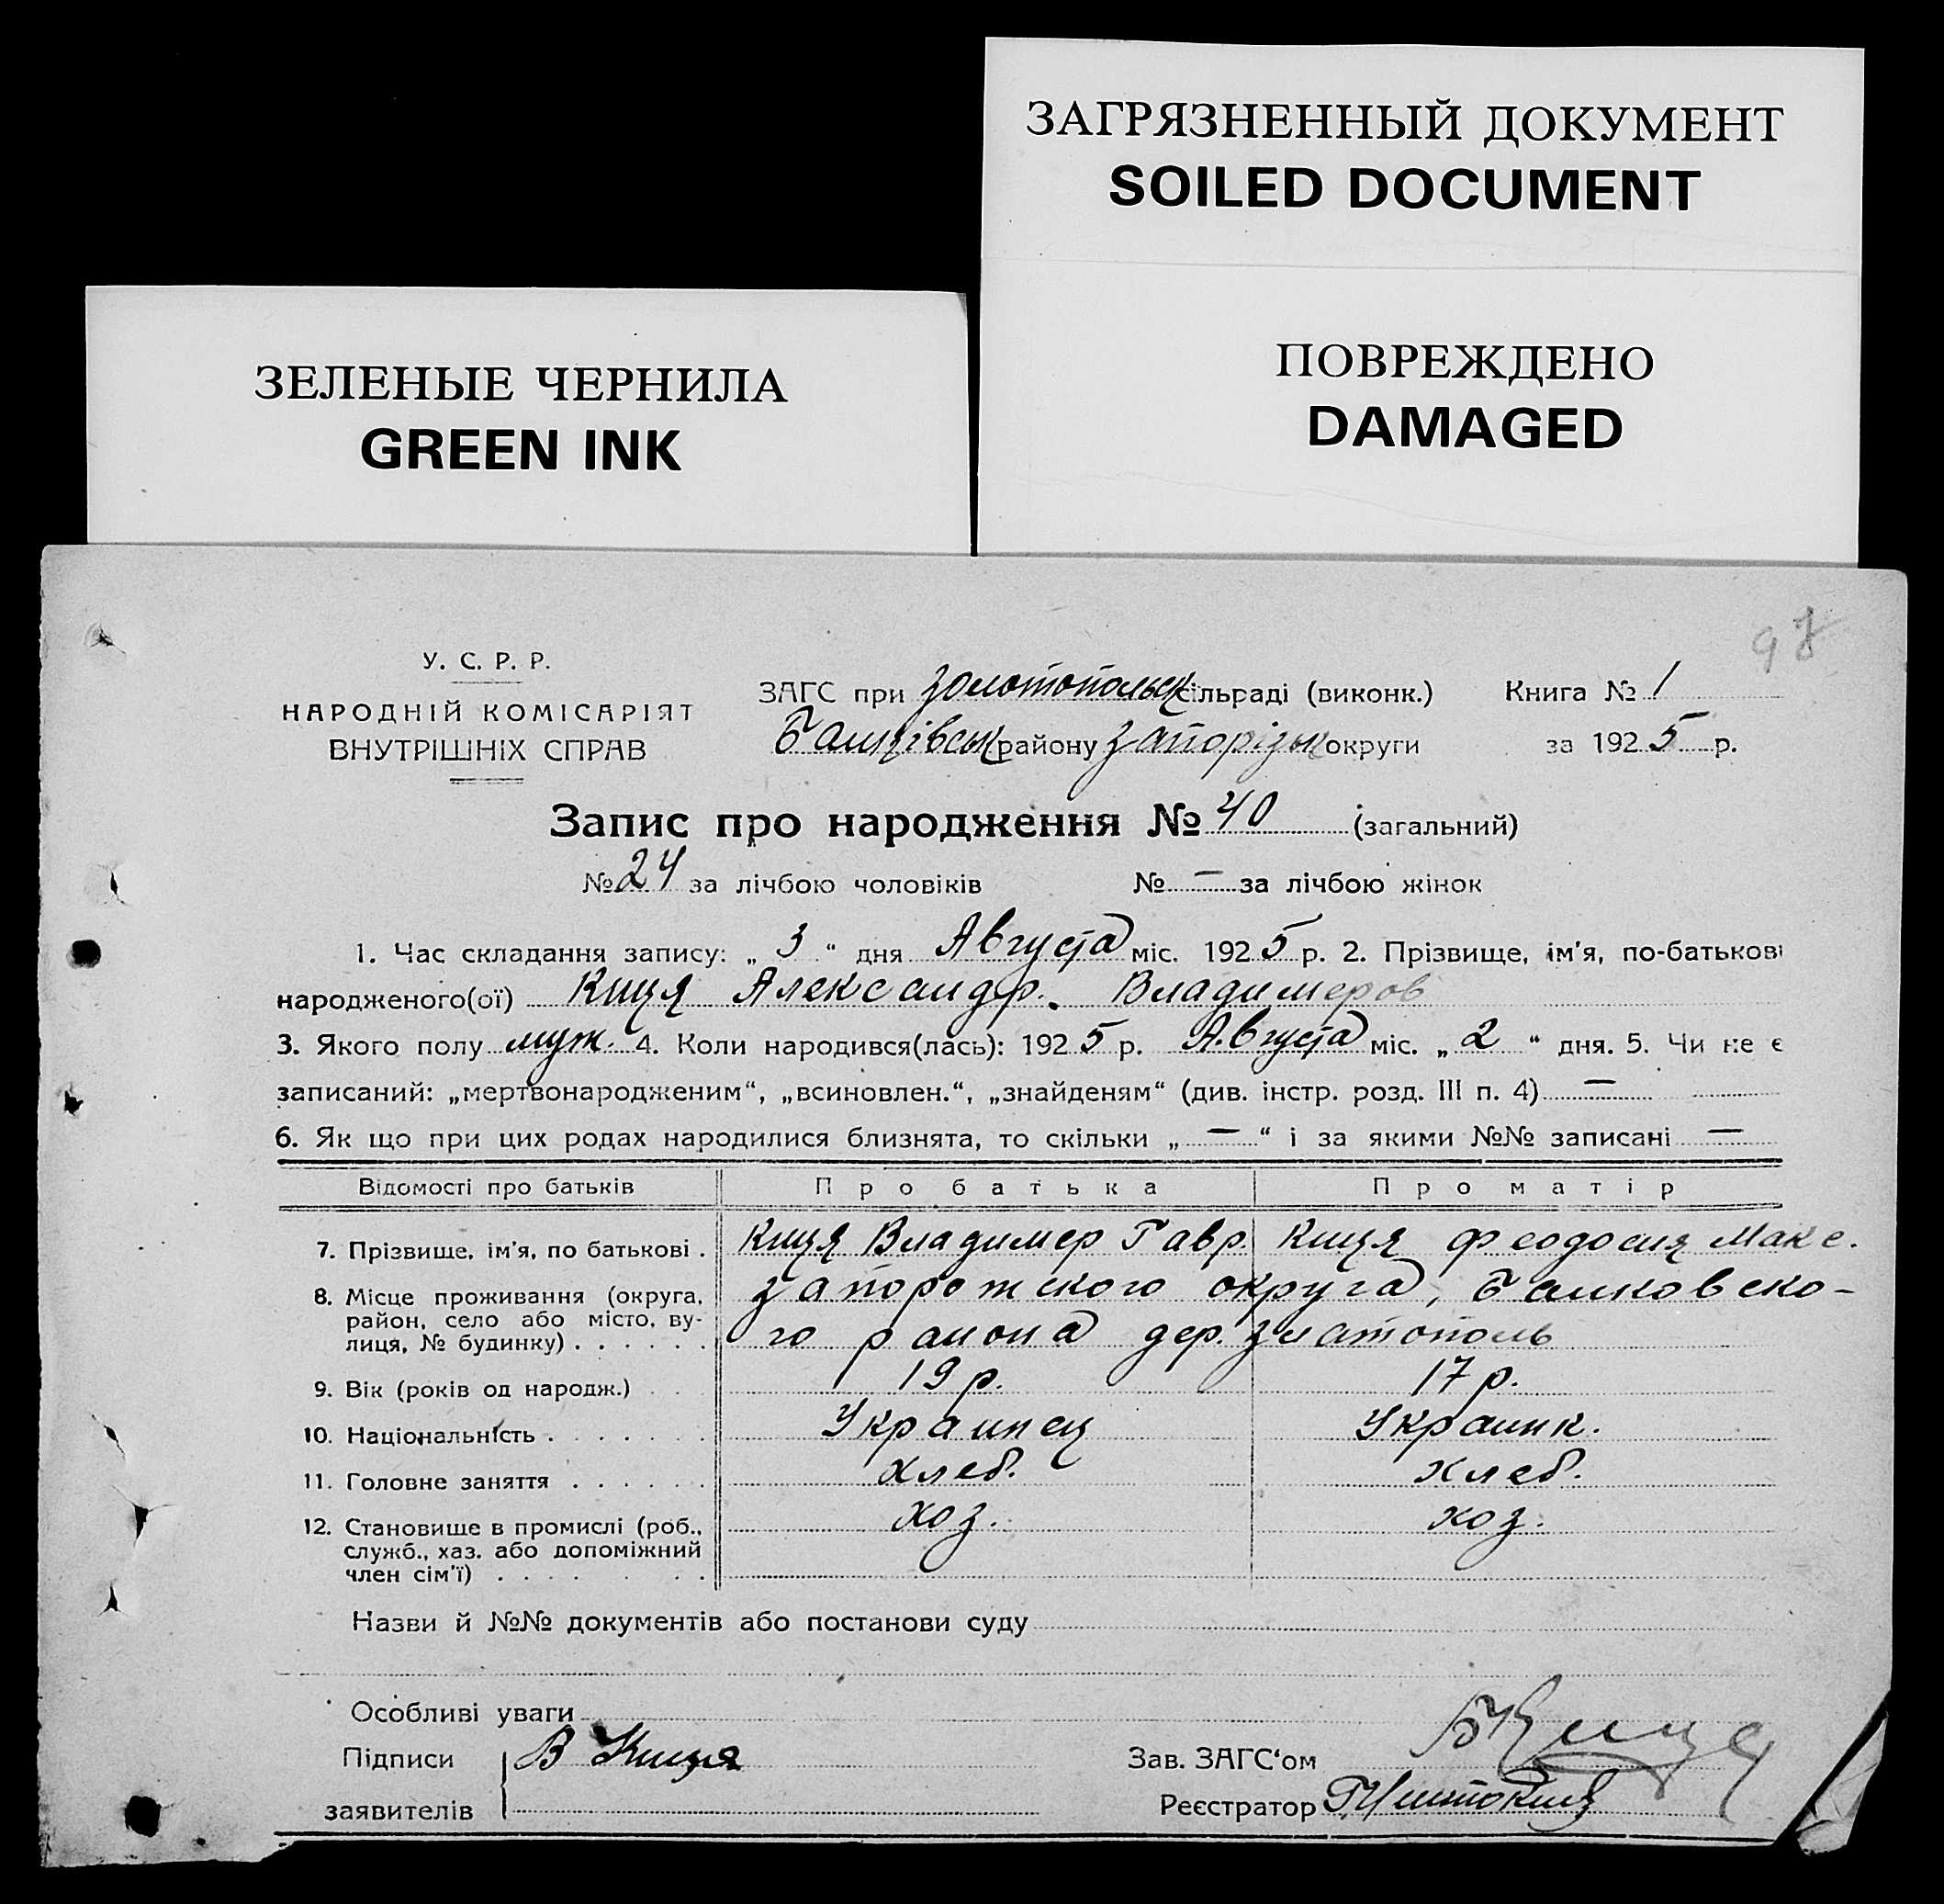 ЗАГРЯЗНЕННЫЙ ДОКУМЕНТ
SOILED DOCUMENT
ПОВРЕЖДЕНО
DAMAGED
ЗЕЛЕНЫЕ ЧЕРНИЛА
GREEN INK
У. С. Р. Р.
НАРОДНІЙ КОМІСАРІЯТ
ВНУТРІШНІХ СПРАВ
ЗАГС при Золотопольск сільраді (виконк.) Книга № 1
Балківськ району Запорізьк округи за 1925 р.
Запис про народження № 40 (загальний)
№ 24 за лічбою чоловіків № — за лічбою жінок
1. Час складання запису: „ 3 “ дня Августа міс. 1925 р. 2. Прізвище, ім'я, по-батькові
народженого(ої) Киця Александр. Владимеров
3. Якого полу муж. 4. Коли народився(лась): 1925 р. Августа міс. „ 2 “ дня. 5. Чи не є
записаний: „мертвонародженим“, „всиновлен.“, „знайденям“ (див. інстр. розд. III п. 4) —
6. Як що при цих родах народилися близнята, то скільки „ — “ і за якими №№ записані —
Відомості про батьків Про батька Про матір
7. Прізвище, ім'я, по батькові . Киця Владимер Гавр. Киця Феодосия Макс.
8. Місце проживання (округа, район, село або місто, вулиця, № будинку) . . . . . . Запорожского округа, Балковско-
го раиона дер. Златополь
9. Вік (років од народж.) . . . 19 р. 17 р.
10. Національність . . . . . . . Украинец Украинк.
11. Головне заняття . . . . . . хлеб. хлеб.
12. Становище в промислі (роб., служб., хаз. або допоміжний член сім'ї) . . . . . . хоз. хоз.
Назви й №№ документів або постанови суду
Особливі уваги
Підписи В Киця Зав. ЗАГС'ом Киця
заявителів Реєстратор